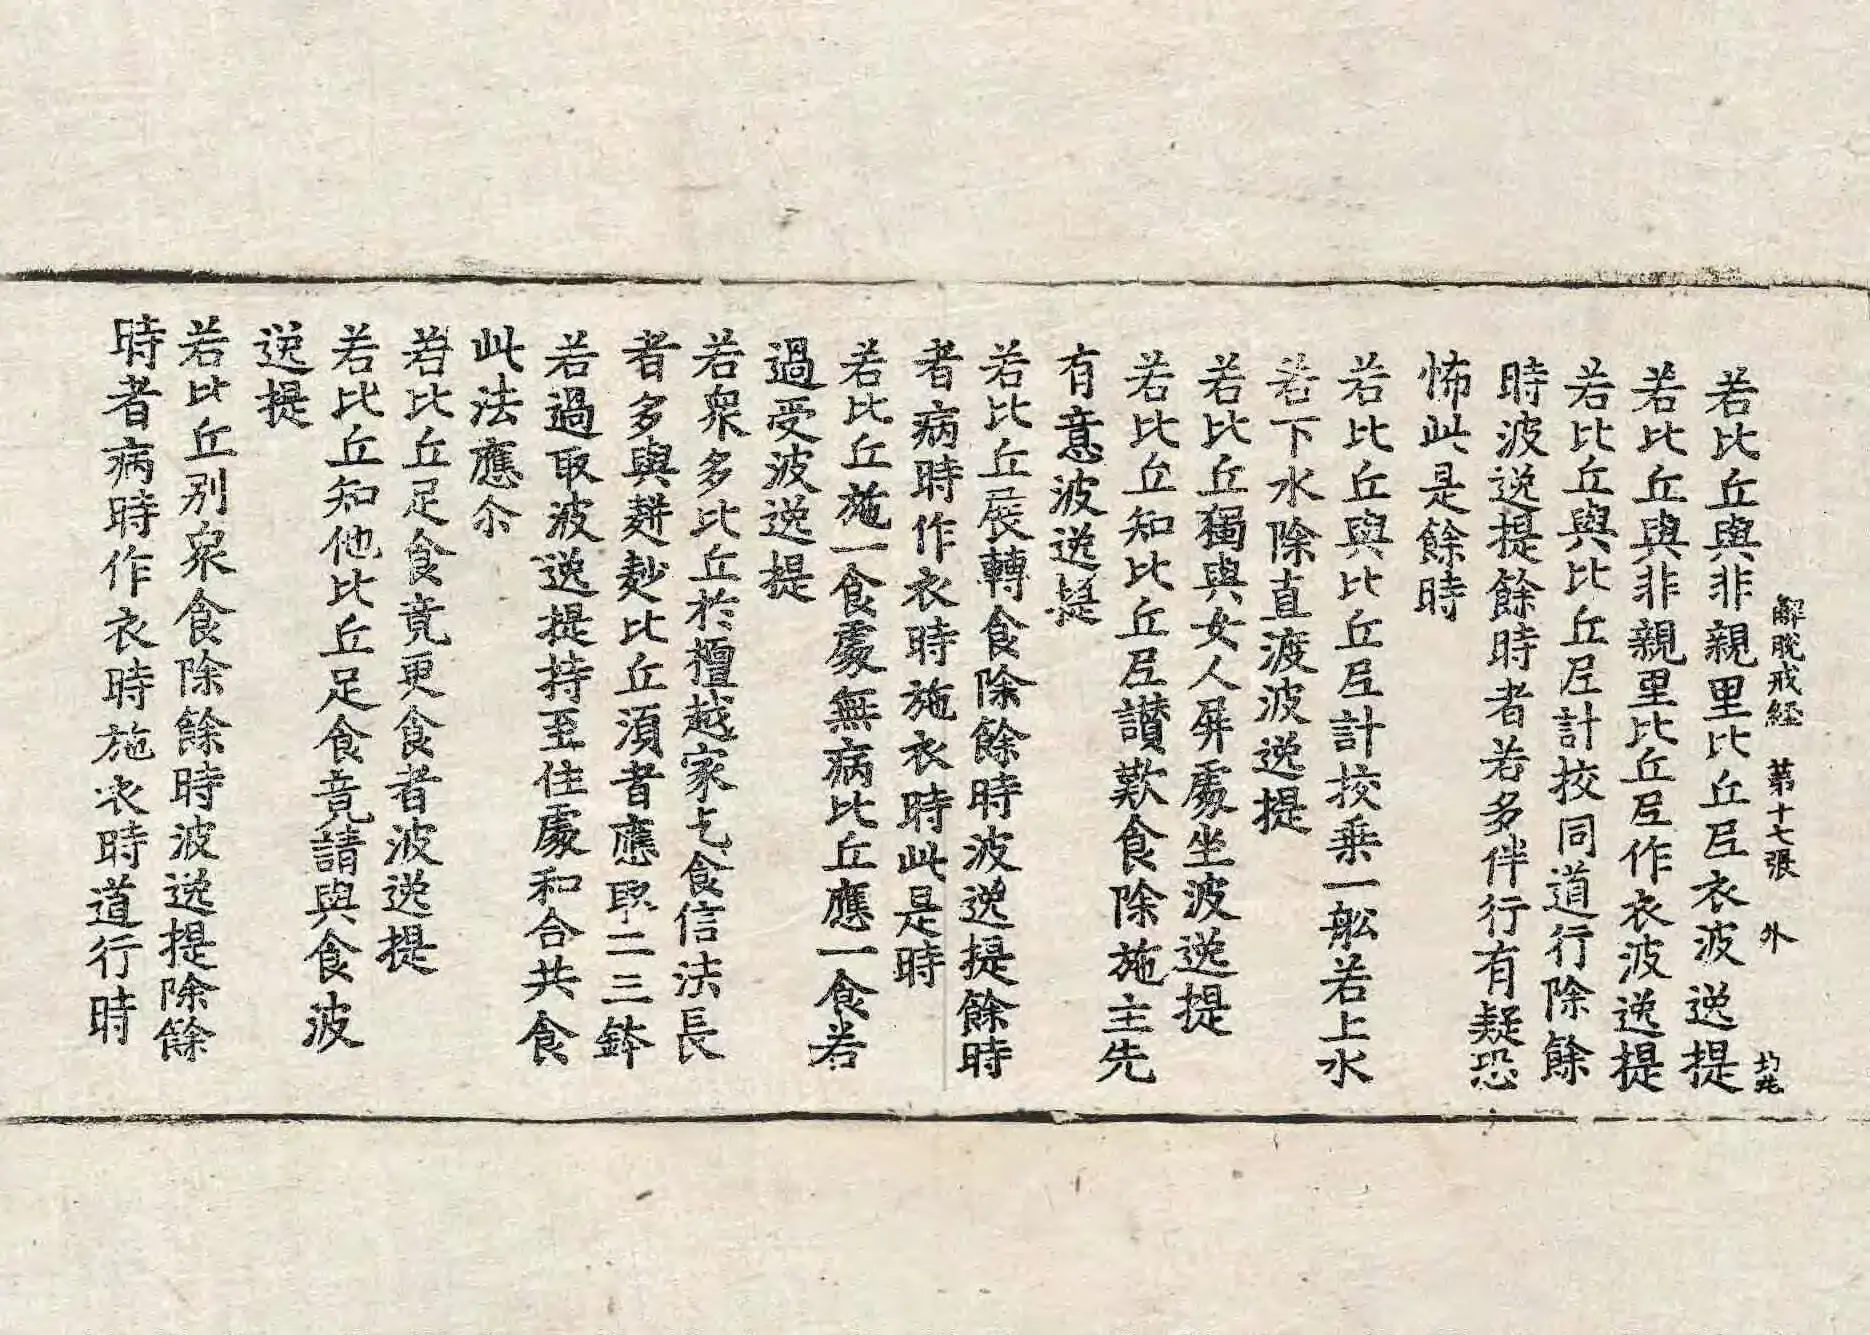 解脫戒経 第十七張 外
若比丘與非親里比丘尼衣波逸提
若比丘與非親里比丘尼作衣波逸提
若比丘與比丘尼計挍同道行除餘
時波逸提餘時者若多伴行有疑恐
怖此是餘時
若比丘與比丘尼計挍乗一舩若上水
若下水除直渡波逸提
若比丘獨與女人屏處坐波逸提
若比丘知比丘尼讃歎食除施主先
有意波逸提
若比丘展轉食除餘時波逸提餘時
者病時作衣時施衣時此是時
若比丘施一食處無病比丘應一食若
過受波逸提
若衆多比丘於檀越家乞食信法長
者多與䴵麨比丘湏者應取二三鉢
若過取波逸提持至住處和合共食
此法應尒
若比丘足食竟更食者波逸提
若比丘知他比丘足食竟請與食波
逸提
若比丘別衆食除餘時波逸提除餘
時者病時作衣時施衣時道行時